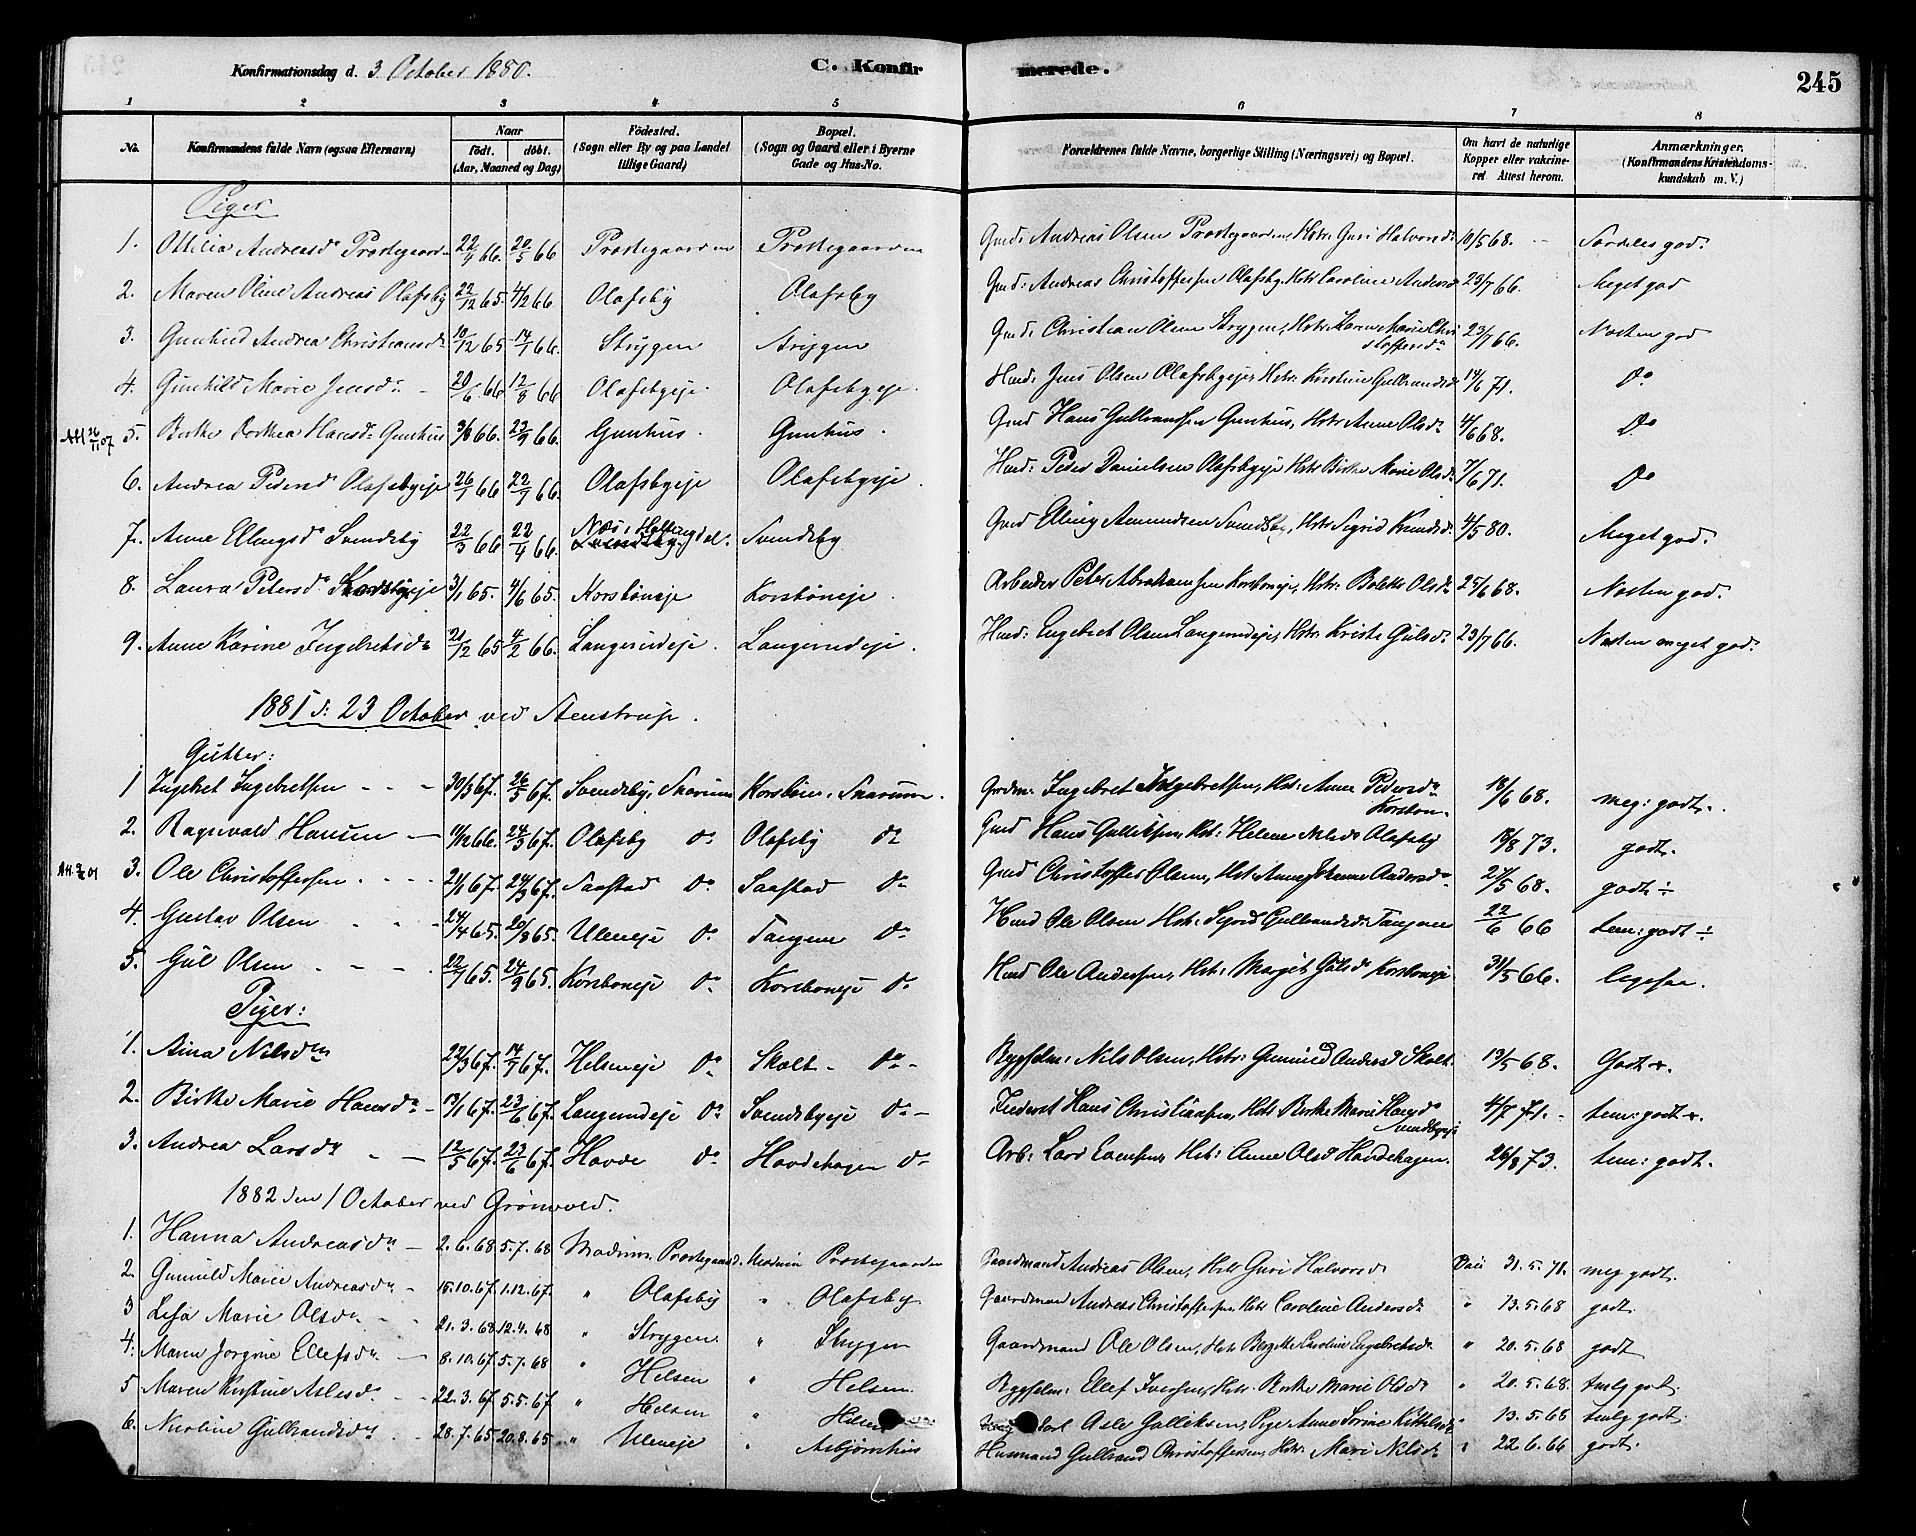 Konfirmationsdag d. 3 October 1880. C. Konfirmerede. 245
1 2 3 4 5 6 7 8
No. Konfirmandens fulde Navn (ogsaa Efternavn) Naar født. døbt. (Aar, Maaned og Dag) Fødested. (Sogn eller By og paa Landet tillige Gaard) Bopæl. (Sogn og Gaard eller i Byerne Gade og Hus-No. Forældrenes fulde Navne, borgerlige Stilling (Næringsvei) og Bopæl. Om havt de naturlige Kopper eller vakcineret Attest herom. Anmærkninger. (Konfirmandens Kristendomskundskab m. V.)
Piger
1. Ottilia Andreasd. Prostegaard 22/4 66. 20/5 66 Prostegaarden Prostegaarden Gmd: Andreas Olsen Prostegaarden, Hstr: Guri Halvorsd. 10/5 68. Særdeles god.
2. Maren Oline Andreas Olafsby 22/12 65. 4/2 66. Olafsby Olafsby Gmd: Andreas Christoffersen Olafsby, Hstr: Caroline Andersd. 23/7 66. Meget god
3. Gunhild Andrea Christiansd. 10/12 65 14/1 66. Strygen Strygen Gmd: Christian Olsen Strygen, Hstr: Karen Marie Christoffersd. 23/7 66. Næsten god
4. Gunhild Marie Jensd. 20/6 66 12/8 66 Olafsbyeje. Olafsbyeje. Hmd: Jens Olsen Olafsbyeje, Hstr: Kirstine Gulbrandsd. 14/6 71. Do
5. Birthe Dorthea Hansd. Gunhus 3/8 66. 22/9 66. Gunhus. Gunhus. Gmd Hans Gulbransen Gunhus, Hstr: Anne Olsd. 4/6 68. Do
6. Andrea Pedersd. Olafsbyeje 26/1 66 22/7 66. Olafsbyeje Olafsbyeje. Hmd: Peder Danielsen Olafsbyeje Hstr Birthe Marie Olsd. 7/6 71. Do
7. Anne Ellingsd. Svendsby 22/3 66 22/4 66. Næs i Hallingdal. Svendsby Gmd Elling Amundsen Svendsby, Hstr: Sigrid Knudsd. 4/5 80. Meget god.
8. Laura Petersd. 3/1 65. 4/6 65. Korsbøneje Korsbøneje. Arbeider Peter Abrahamsen Korsbøneje, Hstr: Bolette Olsd. 25/6 68. Næsten god.
9. Anne Karine Ingebretsd. 21/12 65 4/2 66. Langerudeje. Langerudeje. Hmd: Engebret Olsen Langerudeje, Hstr: Kristi Gulsd. 23/7 66. Næsten meget god.
1881 d: 23 October ved Stenstrup.
Gutter:
1 Ingebret Ingebretsen 30/3 67. 26/5 67. Svendsby, Snarum Korsbøn, Snarum. Grdm: Ingebret Ingebretsen, Hst: Anne Pedersd. Korsbøn. 18/6 68. meg: godt.
2. Ragnvald Hansen 11/12 66. 24/3 67. Olafsby do Olafsby do Gmd Hans Gulliksen, Hst: Helene Nilsd. Olafsby 18/8 73. godt.
3. Ole Christoffersen 21/1 67. 24/3 67. Saastad do Saastad do Gmd Christoffer Olsen, Hst Anne Johanne Andersd. 21/5 68. godt ÷
4. Gustav Olsen 24/4 65. 20/8 65. Uleneje do Tangene do Hmd Ole Olsen Hst: Sigrid Gulbrandsd. Tangene 22/6 66 tem: godt ÷
5. Gul Olsen 22/7 65. 24/9 65. Korsboneje do Korsboneje do Hmd Ole Andersen, Hst: Margit Gulsd. Korsboneje 31/5 66. ligesaa.
Piger:
1. Aina Nilsd. 22/3 67. 14/7 67. Helseneje do Skalt do Bygselm: Nils Olsen, Hstr: Gunild Andersd. Skalt. 13/5 68. Godt +.
2. Birthe Marie Hansd. 13/1 67. 23/6 67. Langerudeje do Svendsbyeje do Inderst Hans Christiansen, Hst Berthe Marie Hansd. Svendsbyeje 4/7 71. tem: godt +.
3. Andrea Larsd. 12/5 67. 23/6 67. Hovde do Hovdehagen do Arb: Lars Evensen, Hst: Anne Olsd. Hovdehagen. 26/8 73. tem: godt.
1882 den 1 October ved Grønvold.
1. Hanna Andreasd. 2.6.68. 5.7.68 Modum Prostegaard. Modum Prostegaarden Gaardmand Andreas Olsen, Hst Guri Halvorsd. 31.5.71. meg godt.
2. Gunnild Marie Andreasd. 15.10.67. 1.12.67. " Olafsby " Olafsby Gaardmand Andreas Christoffersen, Hst Caroline Andersd. " 13.5.68 godt.
3 Lisa Marie Olsd. 21.3.68. 12.4.68 " Strygen " Strygen Gaardmand Ole Olsen, Hst Birgitte Caroline Engebretsd. " 20.5.68 godt
4. Maren Jorgine Ellefsd. 8.10.67. 5.7.68 " Helsen " Helsen Bygselm: Ellef Iversen, Hst: Berthe Marie Olsd. " 20.5.68. temlg godt.
5 Maren Kirstine Aslesd. 22.3.67 5.5.67 " Helsen " Helsen Asle Gulliksen, Pige Anne Sorine Kittelsd. " 13.5.68 temlg godt.
6. Nicoline Gulbrandsd. 28.7.65. 20.8.65 " Uleneje " Asbjørnhus Husmand Gulbrand Christoffersen, Hst: Mari Nilsd. " 22.6.66 godt.